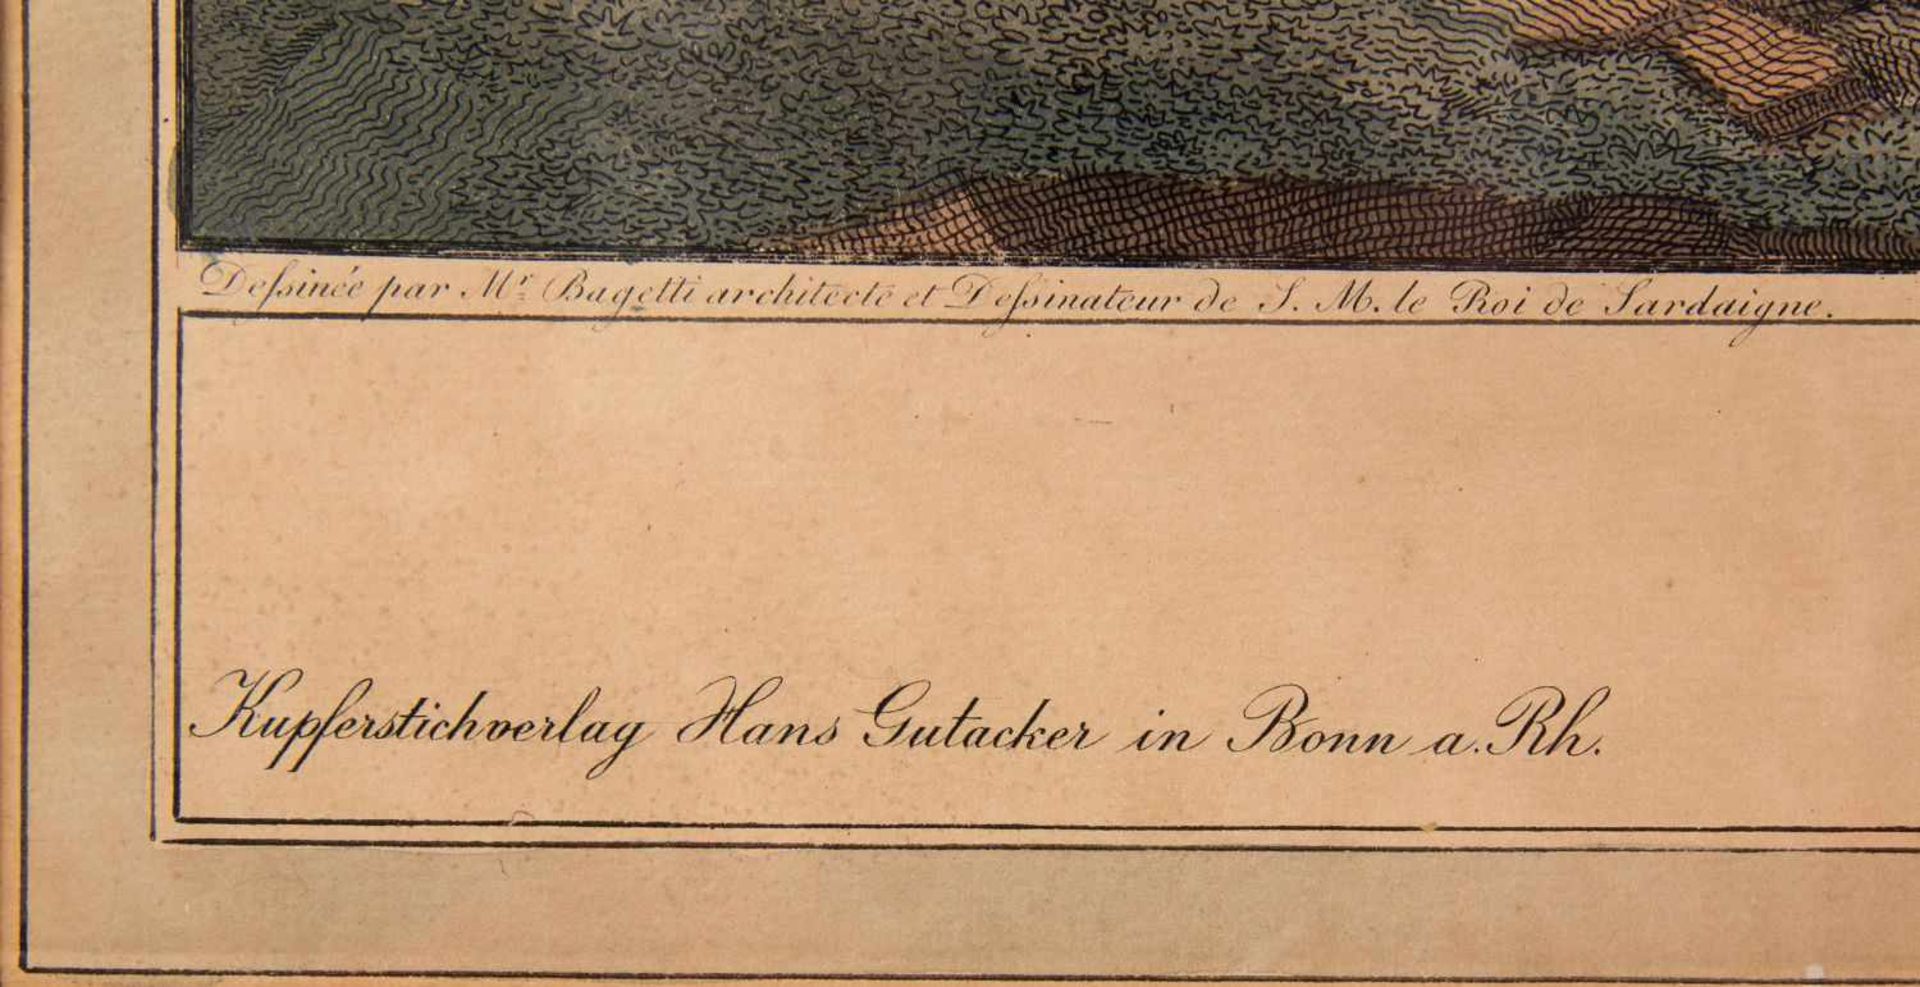 Deſsinée par Mr. Bagetti architecte et Deſsinateur de S. M. le Roi de Sardaigne.
Kupferstichverlag Hans Gutacker in Bonn a. Rh.